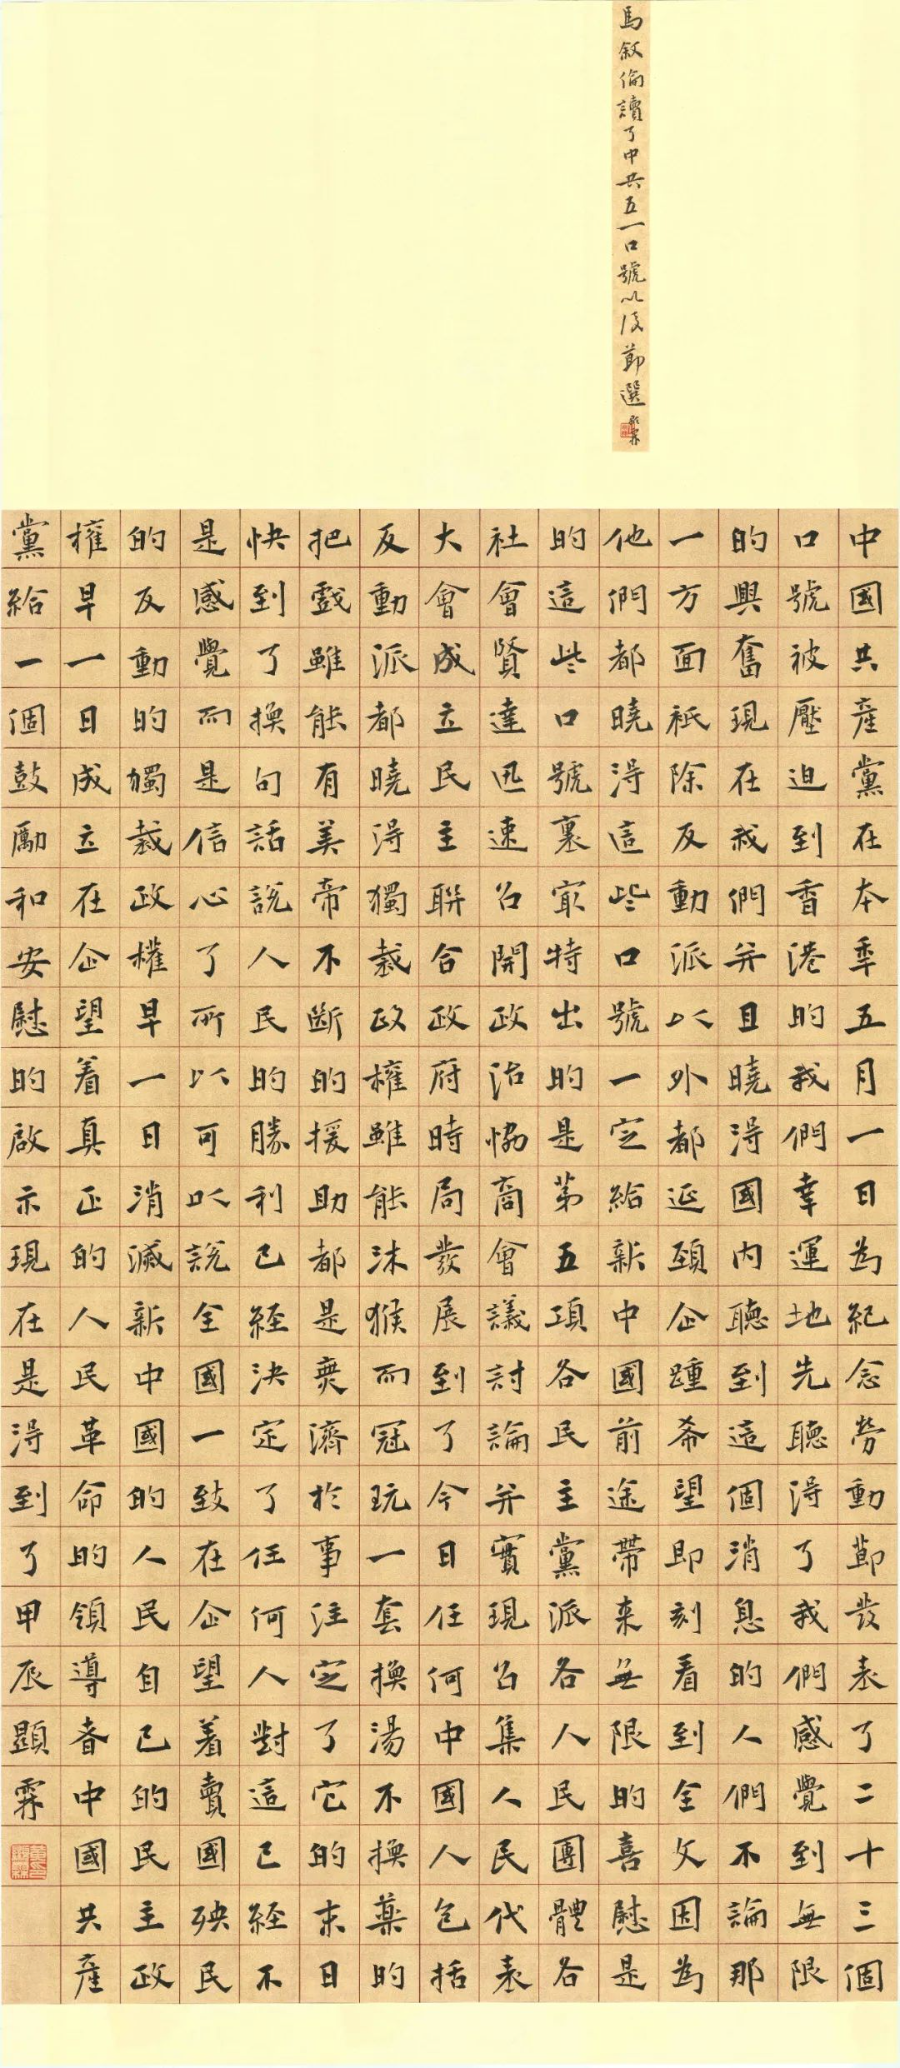 馬敘倫讀了中共五一口號以後節選 顯霖
中國共產黨在本年五月一日為紀念勞動節發表了二十三個
口號被壓迫到香港的我們幸運地先聽得了我們感覺到無限
的興奮現在我們并且曉得國內聽到這個消息的人們不論那
一方面祇除反動派以外都延頸企踵希望即刻看到全文因為
他們都曉得這些口號一定給新中國前途帶来無限的喜慰是
的這些口號裏冣特出的是第五項各民主黨派各人民團體各
社會賢達迅速召開政治協商會議討論并實現召集人民代表
大會成立民主聯合政府時局發展到了今日任何中國人包括
反動派都曉得獨裁政權雖能沐猴而冠玩一套換湯不換藥的
把戲雖能有美帝不斷的援助都是無濟於事注定了它的末日
快到了換句話說人民的勝利已經決定了任何人對這已經不
是感覺而是信心了所以可以說全國一致在企望着賣國殃民
的反動的獨裁政權早一日消滅新中國的人民自己的民主政
權早一日成立在企望着真正的人民革命的領導者中國共產
黨給一個鼓勵和安慰的啟示現在是得到了甲辰顯霖